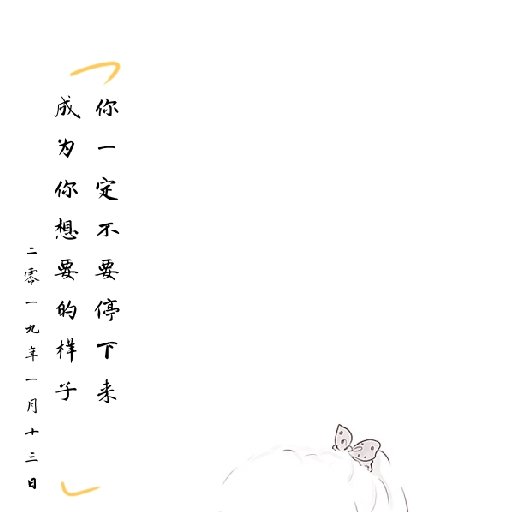 你一定不要停下来
成为你想要的样子
二零一九年一月十三日